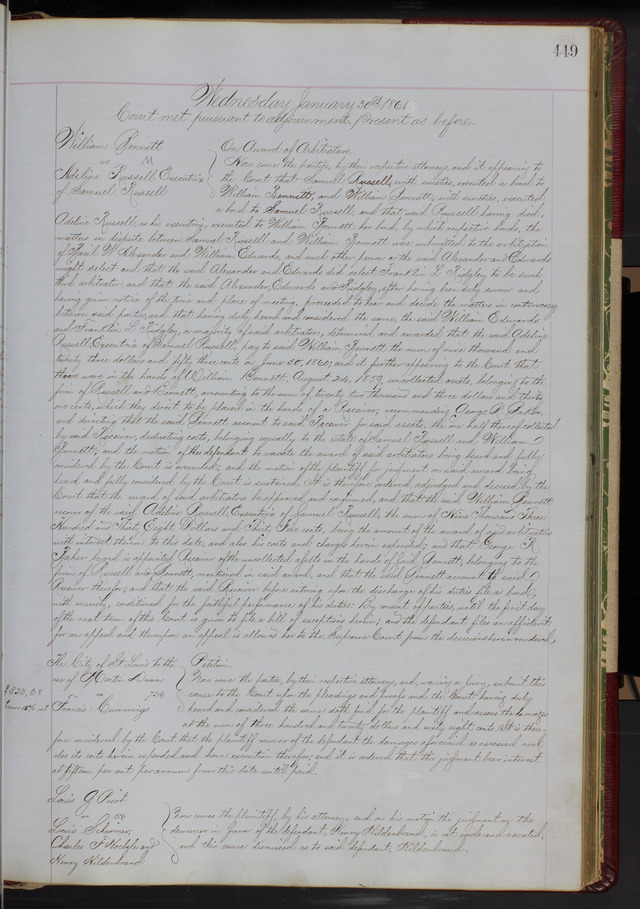 449
Wednesday January 30th 1861.
Court met pursuant to adjournment. Present as before.
William Bennett
vs
Adeline Russell Executrix
of Samuel Russell
On Award of Arbitrators.
Now come the parties, by their respective attorneys, and it appearing to
the Court that Samuel Russell, with sureties, executed a bond to
William Bennett, and William Bennett, with sureties, executed
a bond to Samuel Russell, and that said Russell having died,
Adeline Russell, as his executrix, executed to William Bennett her bond, by which respective bonds, the
matters in dispute between Samuel Russell and William Bennett were submitted to the arbitration
of W. Alexander and William Edwards, and such other person as the said Alexander and Edwards
might select and that the said Alexander and Edwards did select Franklin L. Ridgley to be such
third arbitrator, and that the said Alexander, Edwards and Ridgley, after having been duly sworn and
having given notice of the time and place of meeting, proceeded to hear and decide the matters in controversy
between said parties, and that having duly heard and considered the same, the said William Edwards
and Franklin L. Ridgley, a majority of said arbitrators, determined and awarded that the said Adeline
Russell, Executrix of Samuel Russell, pay to said William Bennett the sum of nine thousand and
twenty three dollars and fifty three cents on June 30, 1860; and it further appearing to the Court that
there were in the hands of William Bennett, August 24, 1859, uncollected assets, belonging to the
firm of Russell and Bennett, amounting to the sum of twenty two thousand and three dollars and thirty
one cents, which they direct to be placed in the hands of a Receiver, recommending George R. Baker,
and directing that the said Bennett account to said Receiver for said assets, the one half thereof collected
by said Receiver, deducting costs, belonging equally to the estate of Samuel Russell and William
Bennett; and the motion of the defendant to vacate the award of said arbitrators being heard and fully
considered by the Court is overruled; and the motion of the plaintiff for judgment on said award being
heard and fully considered by the Court is sustained. It is therefore ordered, adjudged and decreed by the
Court that the award of said arbitrators be approved and confirmed, and that the said William Bennett
recover of the said Adeline Russell, Executrix of Samuel Russell, the sum of Nine Thousand Three
Hundred and Thirty Eight Dollars and Thirty cents, being the amount of the award of said arbitrators
with interest thereon to this date, and also his costs and charges herein expended; and that George R.
Baker be and is appointed Receiver of the uncollected assets in the hands of said Bennett, belonging to the
firm of Russell and Bennett, mentioned in said award, and that the said Bennett account to said
Receiver therefor; and that said Receiver before entering upon the discharge of his duties file a bond,
with security, conditioned for the faithful performance of his duties. By consent of parties, until the first day
of the next term of this Court is given to file a bill of exceptions herein; and the defendant files an affidavit
for an appeal and thereupon an appeal is allowed her to the Supreme Court from the decision herein rendered.
The City of St Louis to the
use of Martin Dunn
vs
Francis Cummings
$320.68
Petition.
Now come the parties, by their respective attorneys, and, waiving a jury, submit this
cause to the Court upon the pleadings and proofs and the Court having duly
heard and considered the same doth find for the plaintiff and assess the damages
at the sum of three hundred and twenty dollars and sixty eight cents. It is there-
fore considered by the Court that the plaintiff recover of the defendant the damages aforesaid so assessed and
also its costs herein expended and have execution therefor; and it is ordered that this judgment bear interest
at fifteen per cent per annum from this date until paid.
Louis G. Picot
vs
Louis Schirmer,
Charles F. and
Henry Hildenbrand
Now comes the plaintiff, by his attorney, and on his motion the judgment on the
demurrer in favor of the defendant, Henry Hildenbrand, is set aside and vacated,
and this cause dismissed as to said defendant, Hildenbrand.